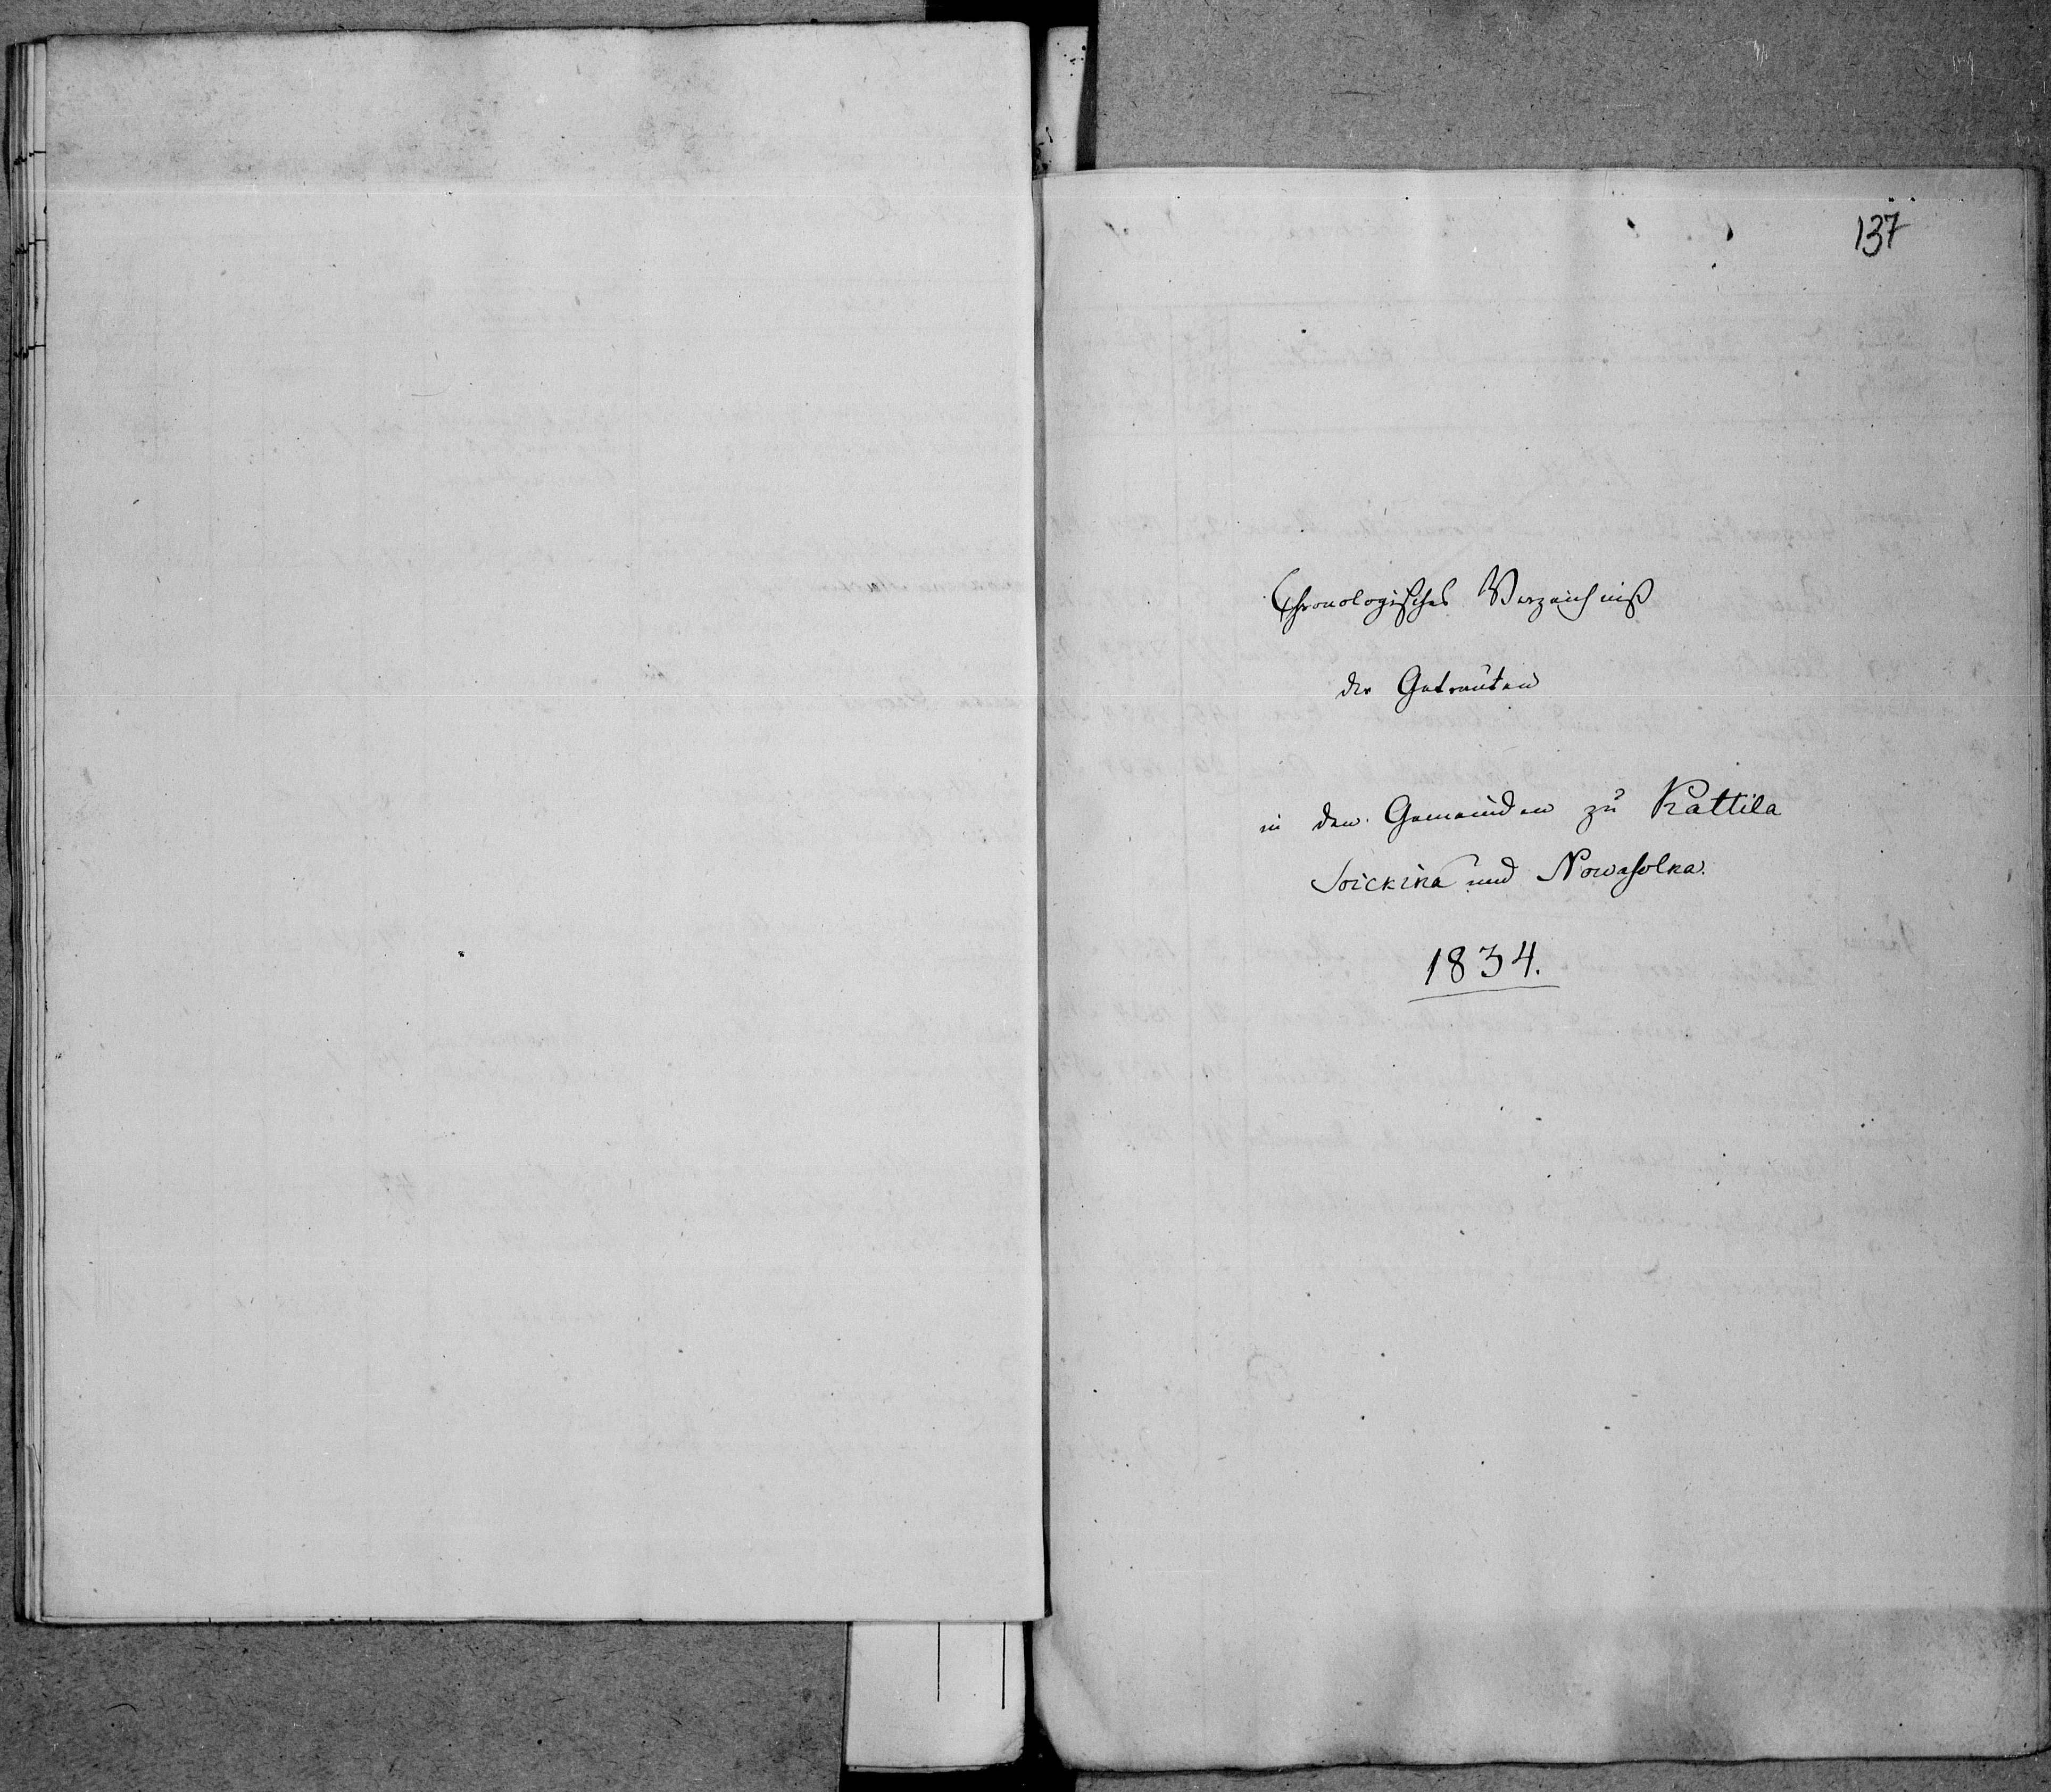 137
Chronologisches Verzeichniß
der Getrauten
in den Gemeinden zu Kattila
Soickina und Nowasolka.
1834.